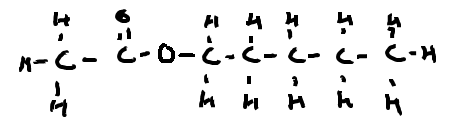 H O H H H H H
H-C-C-O-C-C-C-C-C-H
H H H H H H